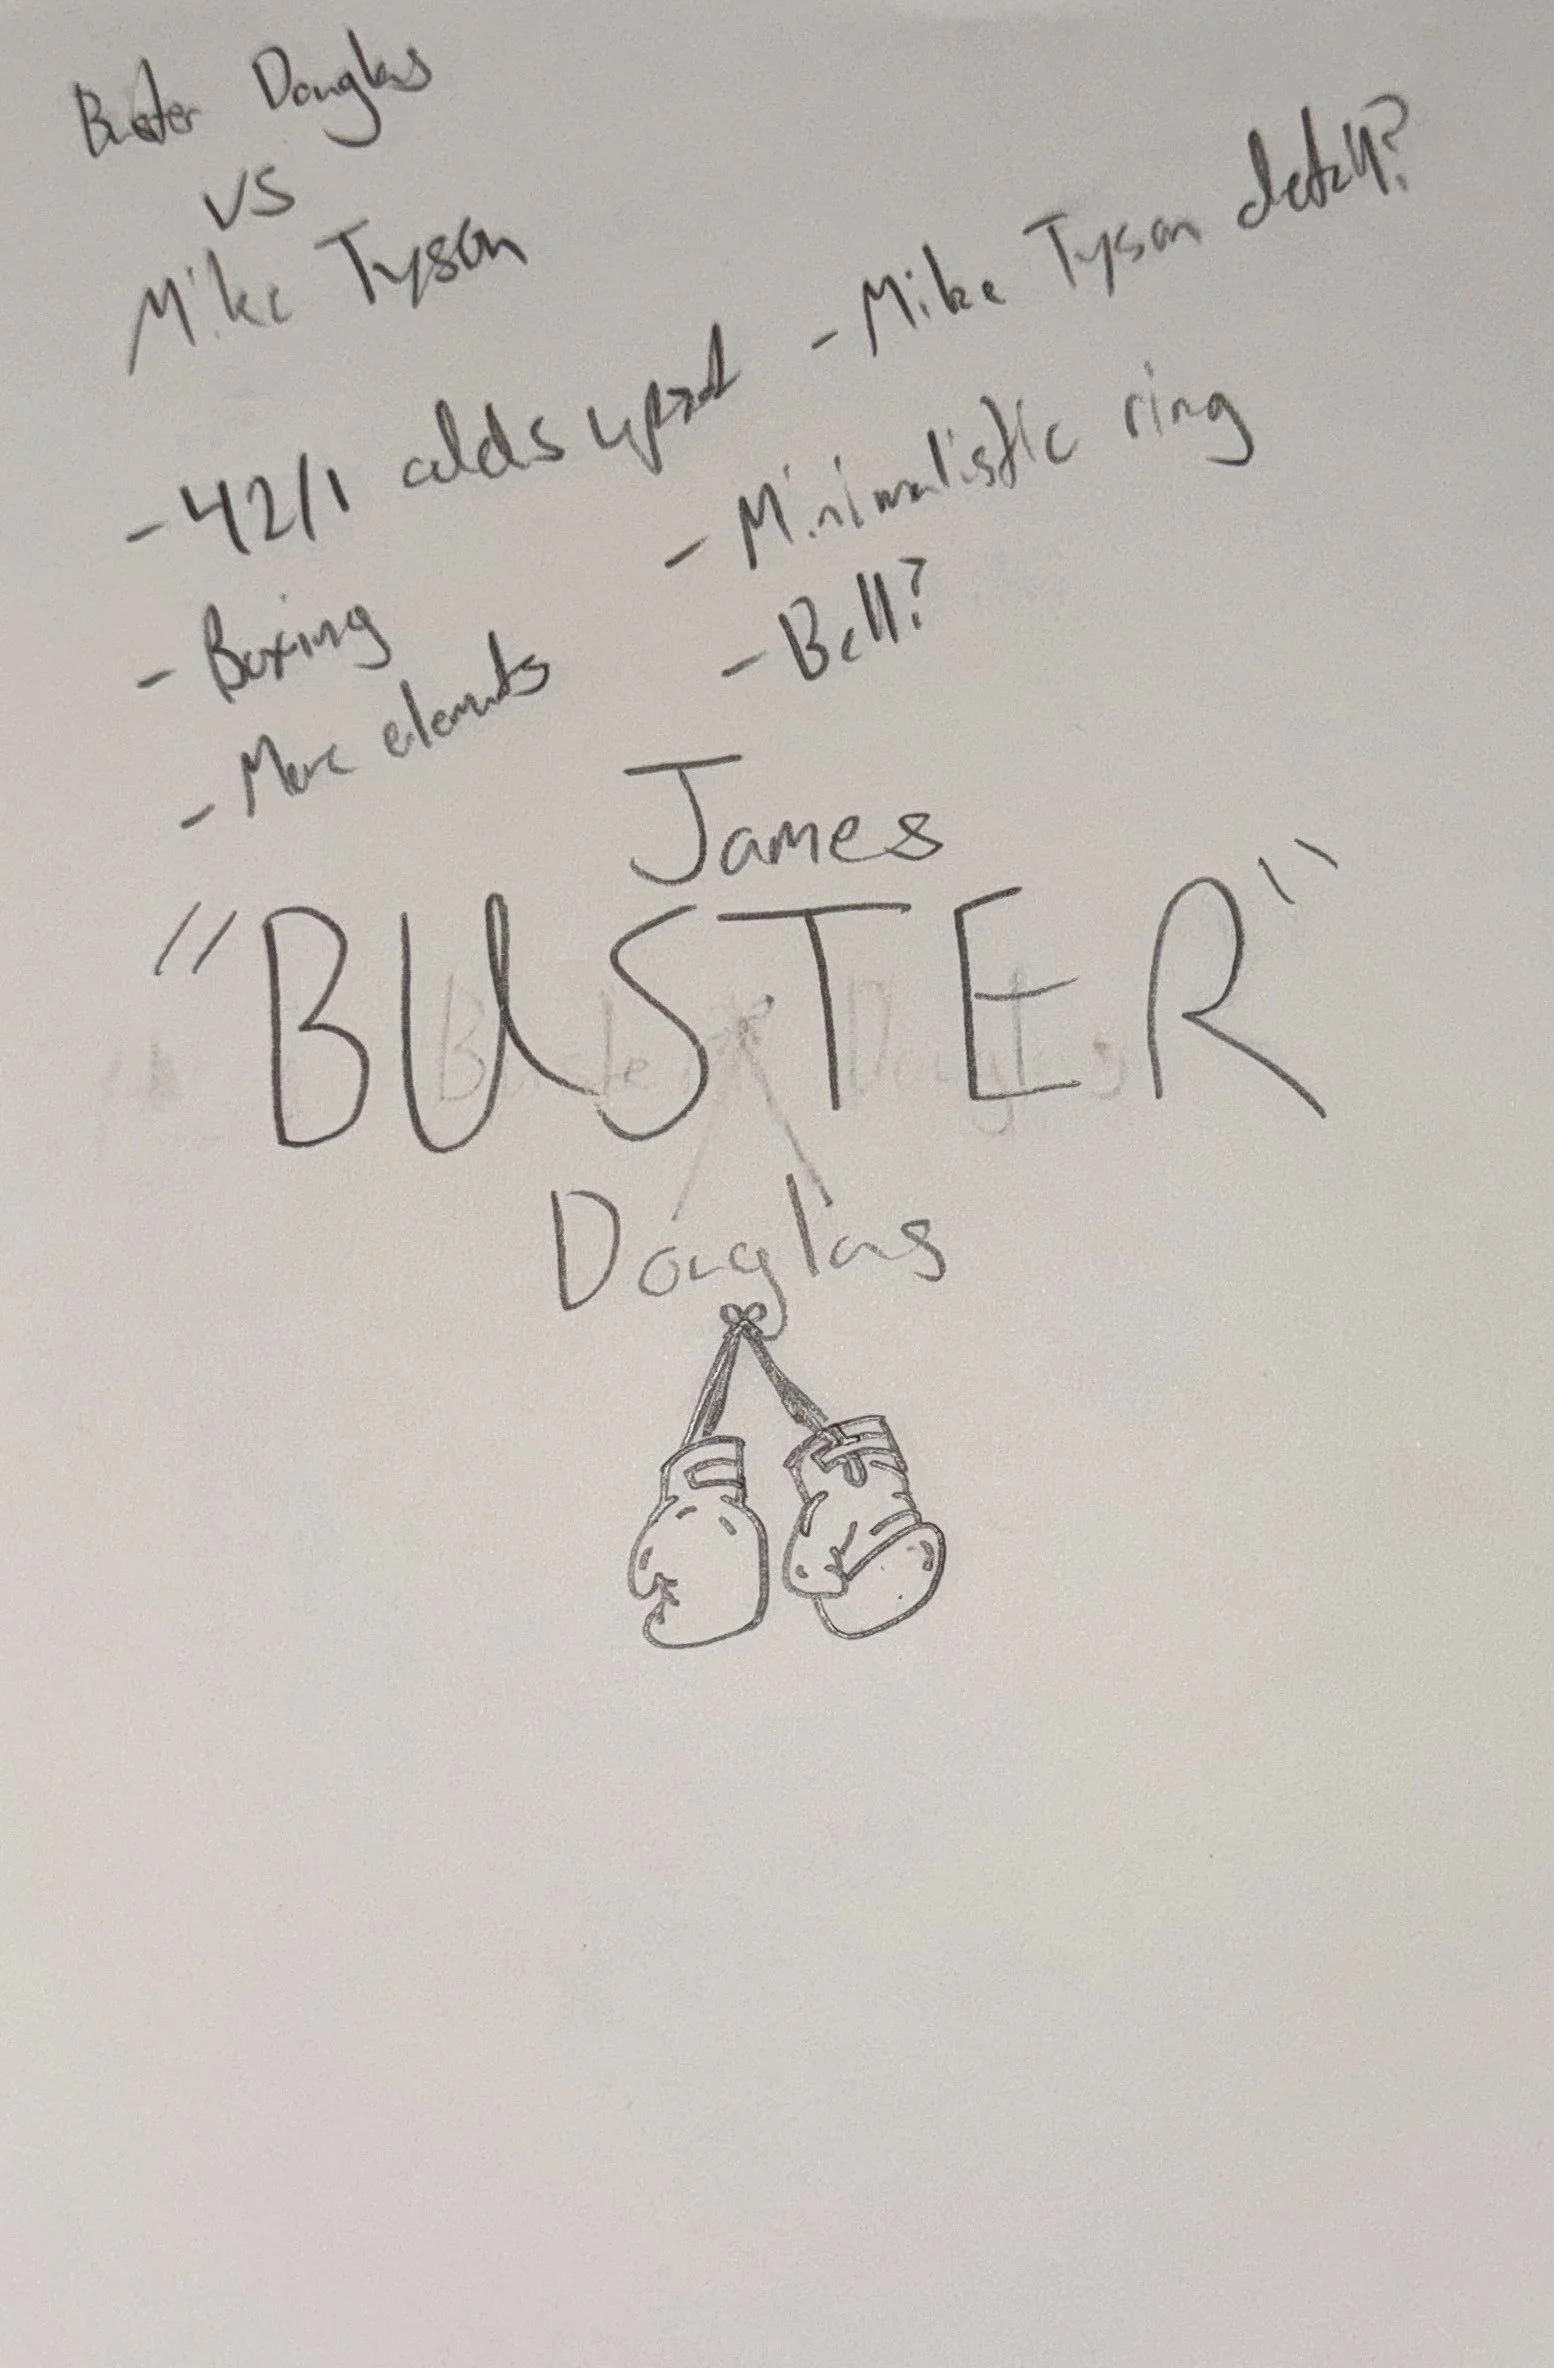 Buster Douglas
vs
Mike Tyson
- 42/1 odds upset
- Boxing
- More elements
- Mike Tyson detail?
- Minimalistic ring
- Bell?
James
"BUSTER"
Buster Douglas
Douglas